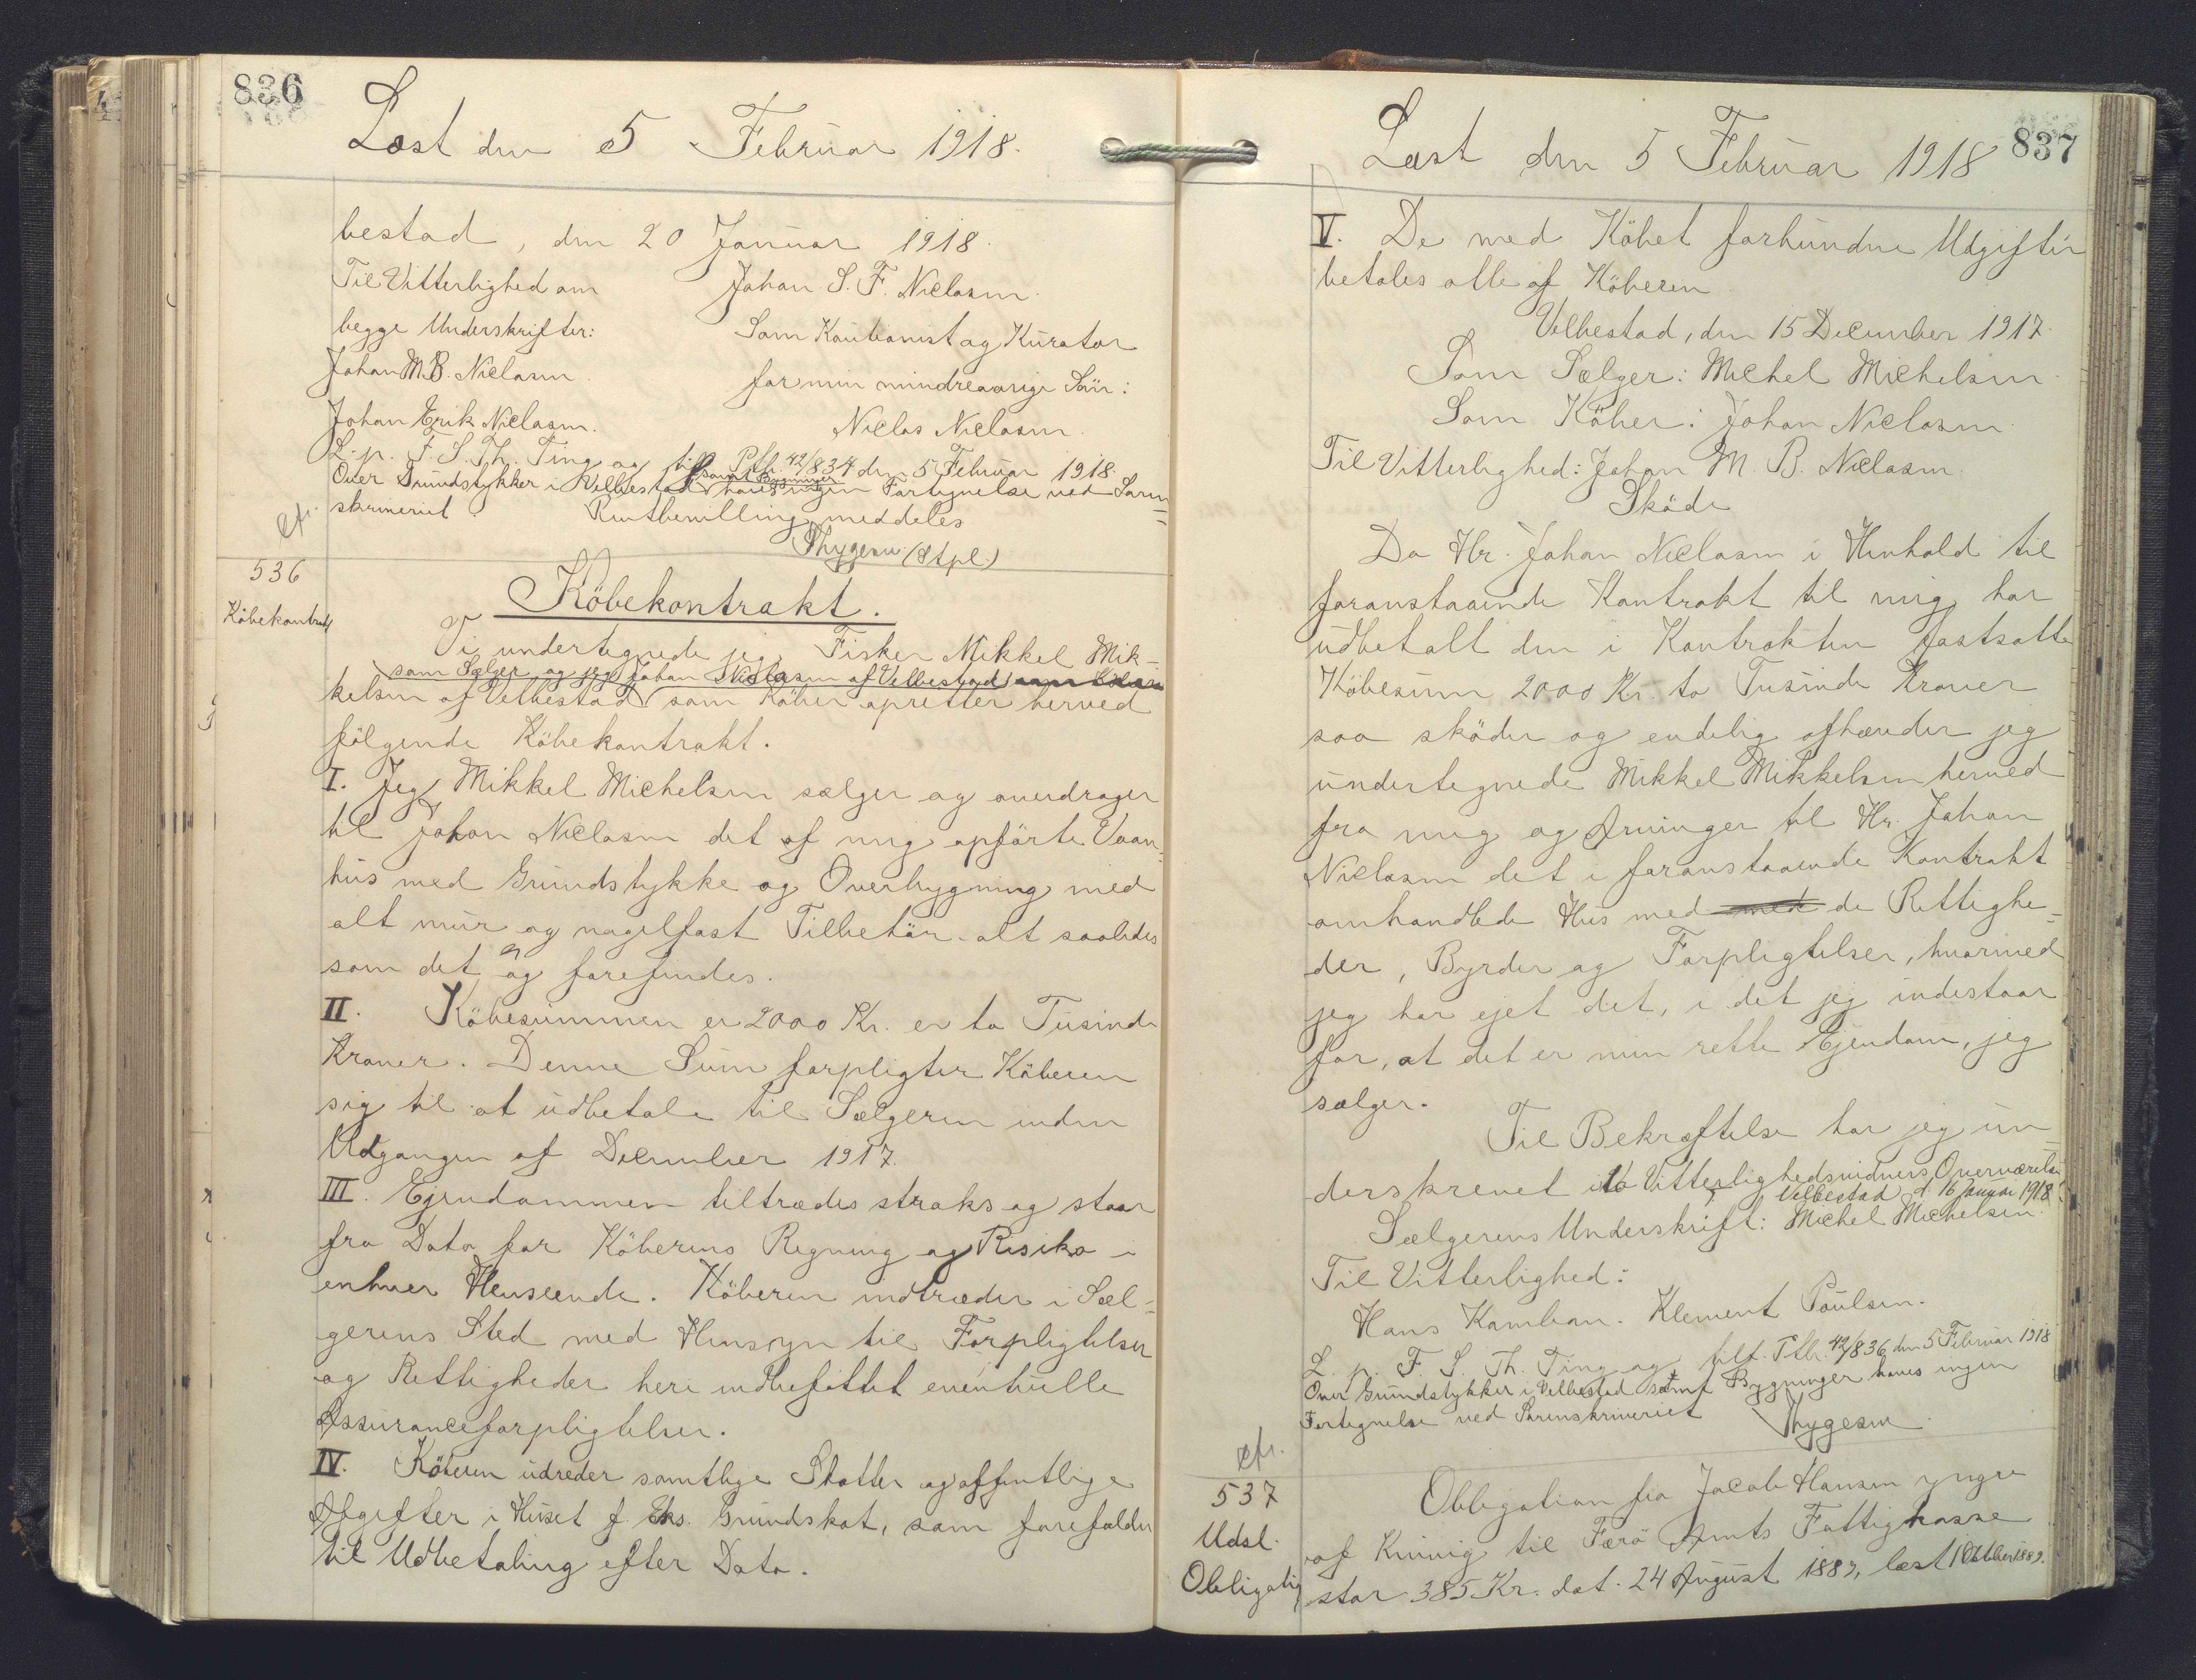 836
Læst den 5 Februar 1918.
bestad, den 20 Januar 1918.
Til Vitterlighed om
begge Underskrifter:
Johan M. B. Niclasen.
Johan Erik Niclasen.
Johan S. F. Niclasen.
Som Kautionist og Kurator
for min mindreaarige Sön:
Niclas Niclasen.
L. p. F. S. Th. Ting og tilf. Ptb. 42/834 den 5 Februar 1918.
samt Bygninger
Over Grundstykker i Velbestad haves ingen Fortegnelse ved Soren=
skriveriet. Rentbevilling meddeles
Thygesen (Stpl.)
cfr.
536
Köbekontrakt
Köbekontrakt.
Vi undertegnede jeg Fisker Mikkel Mik=
som Sælger og jeg Johan Niclasen af Velbestad som Köber
kelsen af Velbestad som Köber opretter herved
fölgende Köbekontrakt.
I. Jeg Mikkel Michelsen sælger og overdrager
til Johan Niclasen det af mig opförte Vaan=
hus med Grundstykke og Overbygning med
alt mur og nagelfast Tilbehör alt saaledes
som det er og forefindes.
II. Köbesummen er 2000 Kr. er to Tusinde
Kroner. Denne Sum forpligter Köberen
sig til at udbetale til Sælgeren inden
Udgangen af December 1917.
III. Ejendommen tiltrædes straks og staar
fra Dato for Köberens Regning og Risiko i
enhver Henseende. Köberen indtræder i Sæl=
gerens Sted med Hensyn til Forpligtelser
og Rettigheder heri indbefattet eventuelle
Assuranceforpligtelser.
IV. Köberen udreder samtlige Skatter og offentlige
Afgifter i Huset f. Eks. Grundskat, som forefalder
til Udbetaling efter Dato.
837
Læst den 5 Februar 1918
V. De med Köbet forbundne Udgifter
betales alle af Köberen
Velbestad, den 15 December 1917.
Som Sælger: Michel Michelsen.
Som Köber: Johan Niclasen.
Til Vitterlighed: Johan M. B. Niclasen.
Sköde
Da Hr. Johan Niclasen i Henhold til
foranstaaende Kontrakt til mig har
udbetalt den i Kontrakten fastsatte
Köbesum 2000 Kr. to Tusinde Kroner
saa sköder og endelig afhænder jeg
undertegnede Mikkel Mikkelsen herved
fra mig og Arvinger til Hr. Johan
Niclasen det i foranstaaende Kontrakt
omhandlede Hus med med de Rettighe=
der, Byrder og Forpligtelser, hvormed
jeg har ejet det, i det jeg indestaar
for, at det er min rette Ejendom, jeg
sælger.
Til Bekræftelse har jeg un=
derskrevet i to Vitterlighedsvidners Overværelse
Velbestad d. 16 Januar 1918.
Sælgerens Underskrift: Michel Michelsen.
Til Vitterlighed:
Hans Kamban. Klement Poulsen.
L. p. F. S. Th. Ting og tilf. Ptbr. 42/836 den 5 Februar 1918
Over Grundstykker i Velbestad samt Bygninger haves ingen
Fortegnelse ved Sorenskriveriet Thygesen
cfr.
537
Udsl.
Obligation
Obligation fra Jacob Hansen yngre
af Kvivig til Færö Amts Fattigkasse
stor 385 Kr. dat. 24 August 1889, læst 1 Oktober 1889.